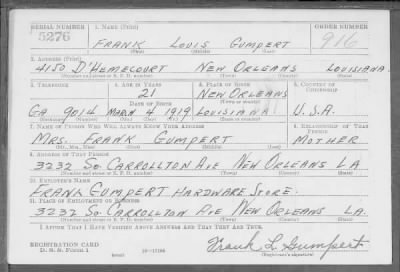 SERIAL NUMBER 1. NAME (Print) ORDER NUMBER
5276 FRANK LOUIS GUMPERT 916
(First) (Middle) (Last)
2. ADDRESS (Print)
4150 D'HEMECOURT NEW ORLEANS LOUISIANA.
(Number and street or R. F. D. number) (Town) (County) (State)
3. TELEPHONE 4. AGE IN YEARS 5. PLACE OF BIRTH 6. COUNTRY OF CITIZENSHIP
21 NEW ORLEANS
DATE OF BIRTH (Town or county)
GA 9014 MARCH 4 1919 LOUISIANA U.S.A.
(Exchange) (Number) (Mo.) (Day) (Yr.) (State or country)
7. NAME OF PERSON WHO WILL ALWAYS KNOW YOUR ADDRESS 8. RELATIONSHIP OF THAT PERSON
MRS. FRANK GUMPERT MOTHER
(Mr., Mrs., Miss) (First) (Middle) (Last)
9. ADDRESS OF THAT PERSON
3232 SO. CARROLLTON AVE NEW ORLEANS LA
(Number and street or R. F. D. number) (Town) (County) (State)
10. EMPLOYER'S NAME
FRANK GUMPERT HARDWARE STORE.
11. PLACE OF EMPLOYMENT OR BUSINESS
3232 SO. CARROLLTON AVE NEW ORLEANS LA.
(Number and street or R. F. D. number) (Town) (County) (State)
I AFFIRM THAT I HAVE VERIFIED ABOVE ANSWERS AND THAT THEY ARE TRUE.
REGISTRATION CARD
D. S. S. Form 1 Frank L. Gumpert
(Registrant's signature)